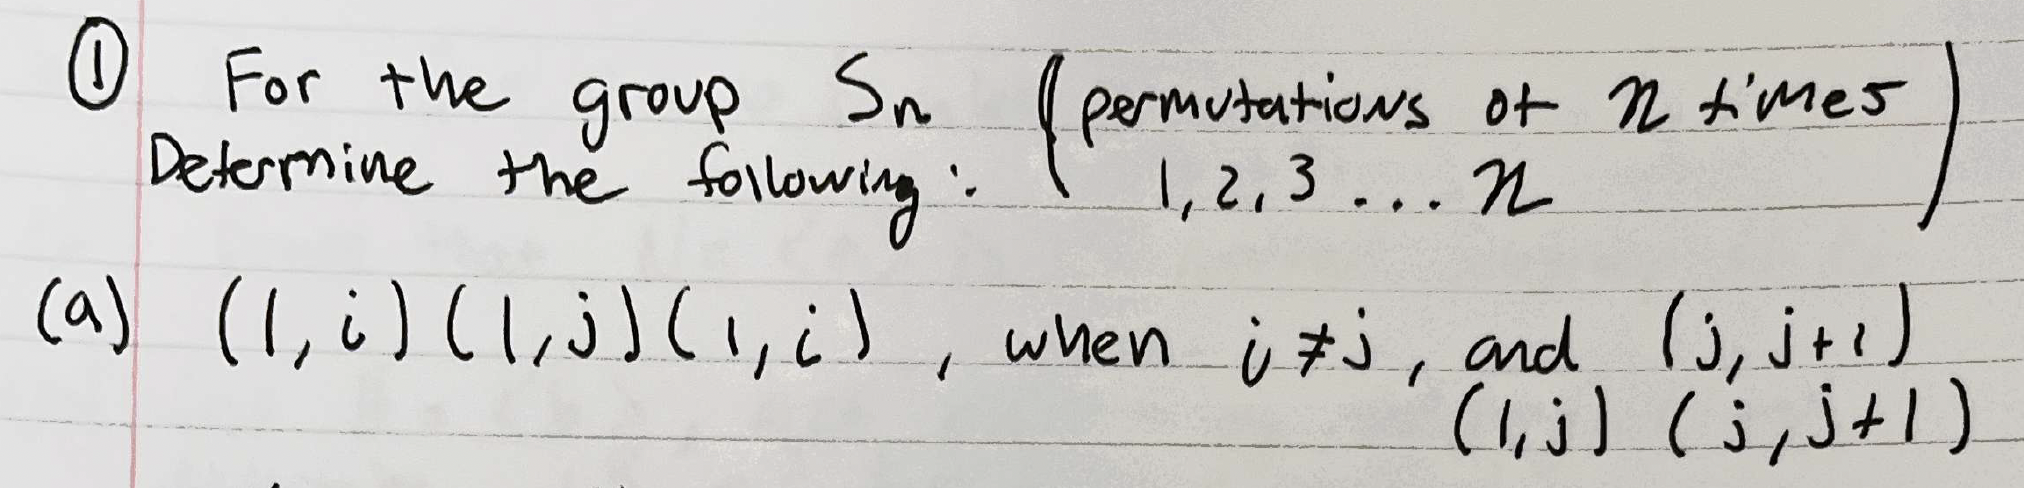 ① For the group Sn (permutations of n times
Determine the following: 1, 2, 3 ... n)
(a) (1, i) (1, j) (1, i), when i ≠ j, and (j, j+1)
(1, j) (j, j+1)